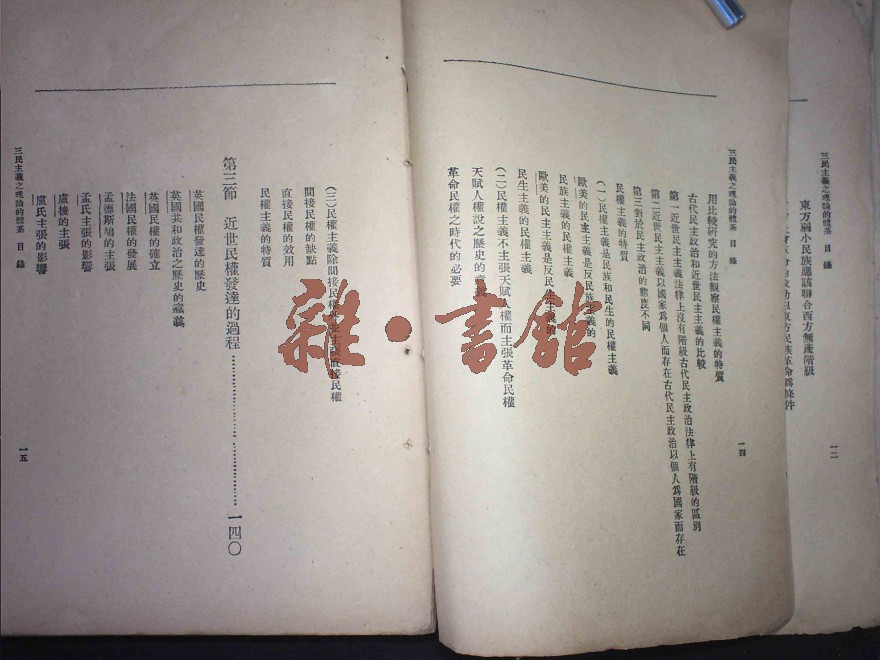 三民主義之理論的體系 目錄
東方弱小民族應該聯合西方無產階級
東方民族革命爲條件
一二
三民主義之理論的體系 目錄
用比較研究的方法觀察民權主義的特質
古代民主政治和近世民主主義的比較
第一近世民主主義法律上沒有階級古代民主政治法律上有階級的區別
第二近世民主主義以國家爲個人而存在古代民主政治以個人爲國家而存在
第三對於民主政治的態度不同
民權主義的特質
(一)民權主義是民族和民生的民權主義
歐美的民主主義是反民族主義的
民族主義的民權主義
歐美的民主主義是反民生主義的
民生主義的民權主義
(二)民權主義不主張天賦人權而主張革命民權
天賦人權說之歷史的意義
革命民權之時代的必要
一四
(三)民權主義除間接民權外並主張直接民權
間接民權的缺點
直接民權的效用
民權主義的特質
第三節 近世民權發達的過程……………………一四〇
英國民權發達的歷史
英國共和政治之歷史的意義
英國民權的確立
法國民權的發展
孟德斯鳩的主張
孟氏主張的影響
盧梭的主張
盧氏主張的影響
三民主義之理論的體系 目錄
一五
雜·書館